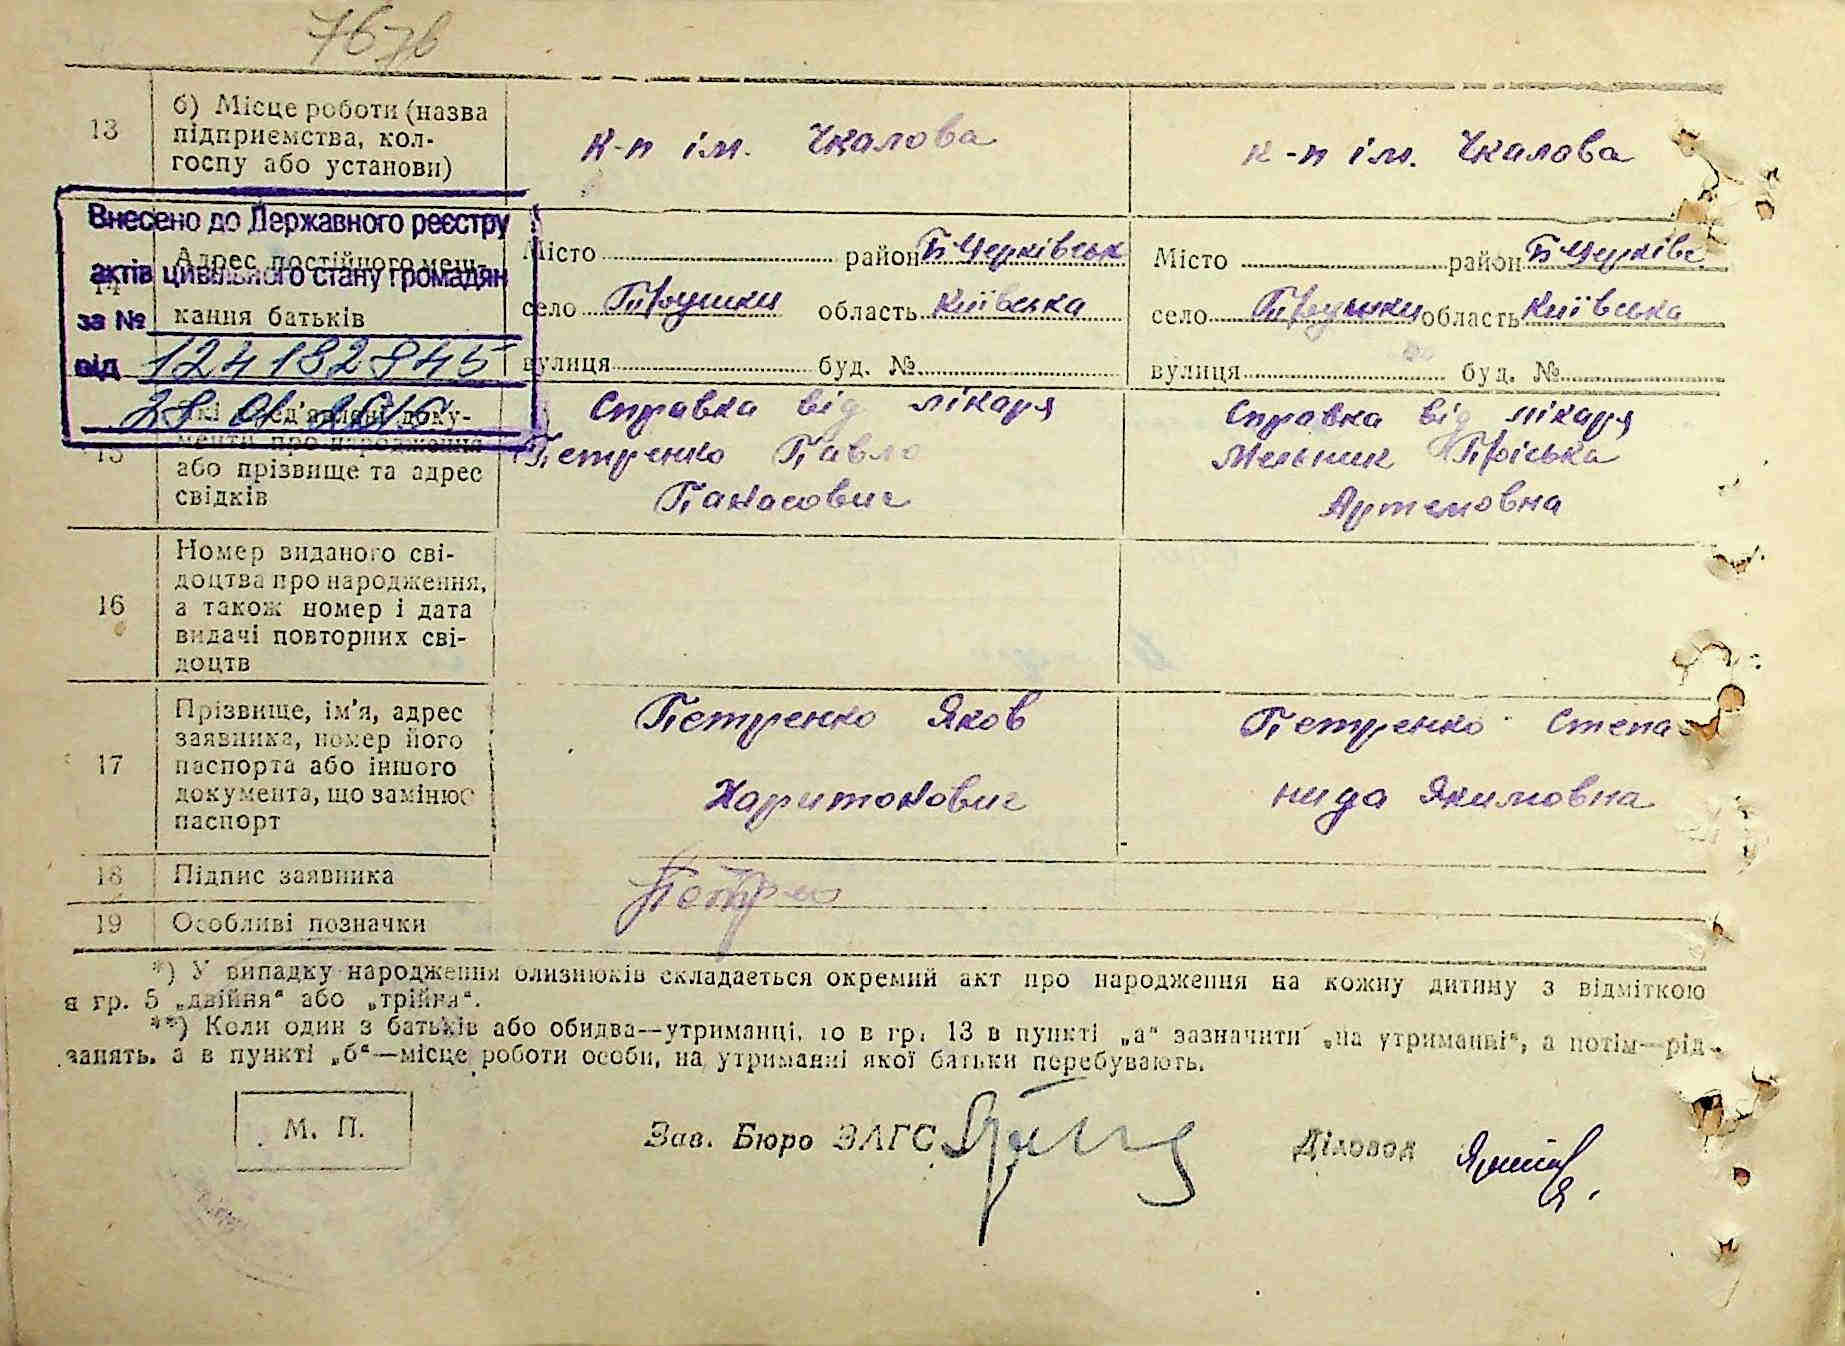 7678
13
б) Місце роботи (назва
підприємства, кол-
госпу або установи)
к-п ім. Чкалова
к-п ім. Чкалова
Внесено до Державного реєстру
актів цивільного стану громадян
за №
від 124182845
28 01
14
Адрес постійного меш-
кання батьків
Місто район Б Церківськ
село Трушки область Київська
вулиця буд. №
Місто район Б Церківс
село Трушки область Київська
вулиця буд. №
15
які пред'явлені доку-
менти про народження
або прізвище та адрес
свідків
Справка від лікаря
Петренко Павло
Панасович
Справка від лікаря
Мельник Пріська
Артемовна
16
Номер виданого сві-
доцтва про народження,
а також номер і дата
видачі повторних сві-
доцтв
17
Прізвище, ім'я, адрес
заявника, номер його
паспорта або іншого
документа, що замінює
паспорт
Петренко Яков
Харитонович
Петренко Степа
нида Якимовна
18
Підпис заявника
19
Особливі позначки
*) У випадку народження близнюків складається окремий акт про народження на кожну дитину з відміткою
в гр. 5 „двійня“ або „трійня“.
**) Коли один з батьків або обидва—утриманці, то в гр. 13 в пункті „а“ зазначити „на утриманні“, а потім—рід
занять, а в пункті „б“—місце роботи особи, на утриманні якої батьки перебувають.
М. П.
Зав. Бюро ЗАГС
Діловод